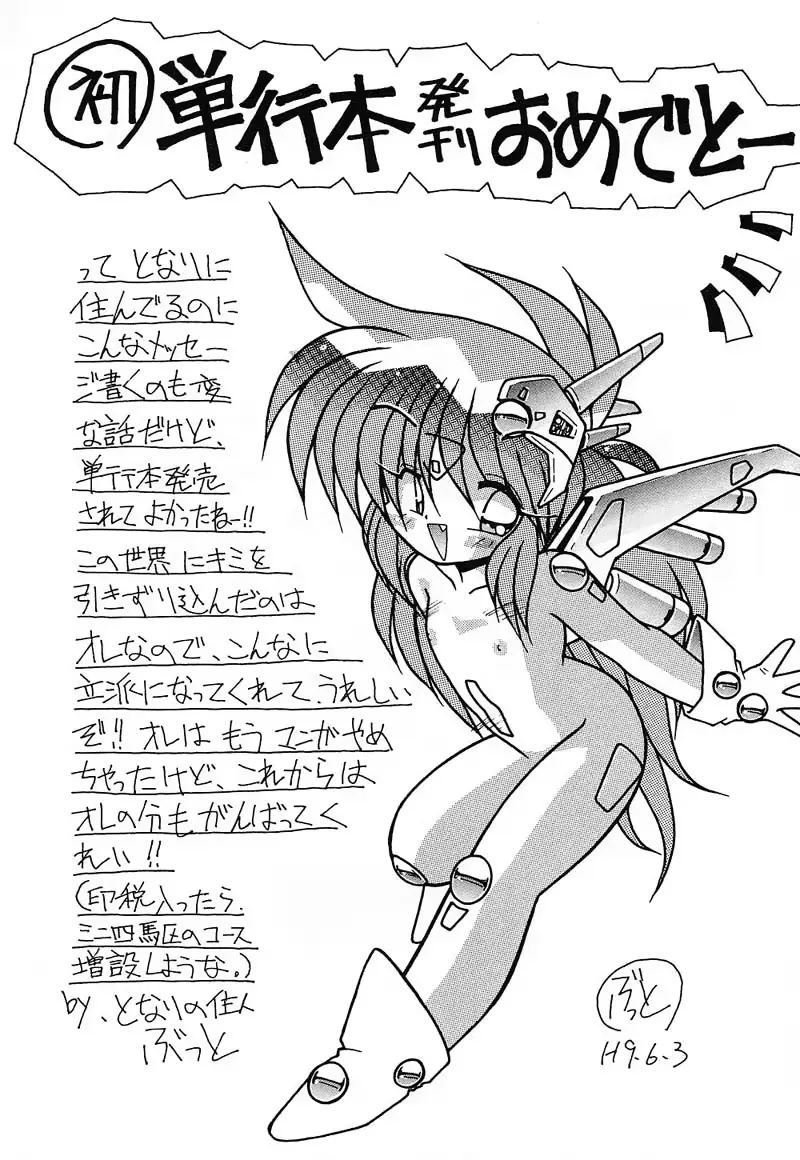 初単行本発刊おめでとー
って となりに
住んでるのに
こんなメッセー
ジ書くのも変
な話だけど、
単行本発売
されてよかったねー!!
この世界にキミを
引きずり込んだのは
オレなので、こんなに
立派になってくれて、うれしい
ぞ!! オレは もう マンガやめ
ちゃったけど、これからは
オレの分もがんばってく
れい!!
(印税入ったら、
ミニ四駆のコース
増設しような。)
by、となりの住人
ぶっと
ぶっと
H9.6.3